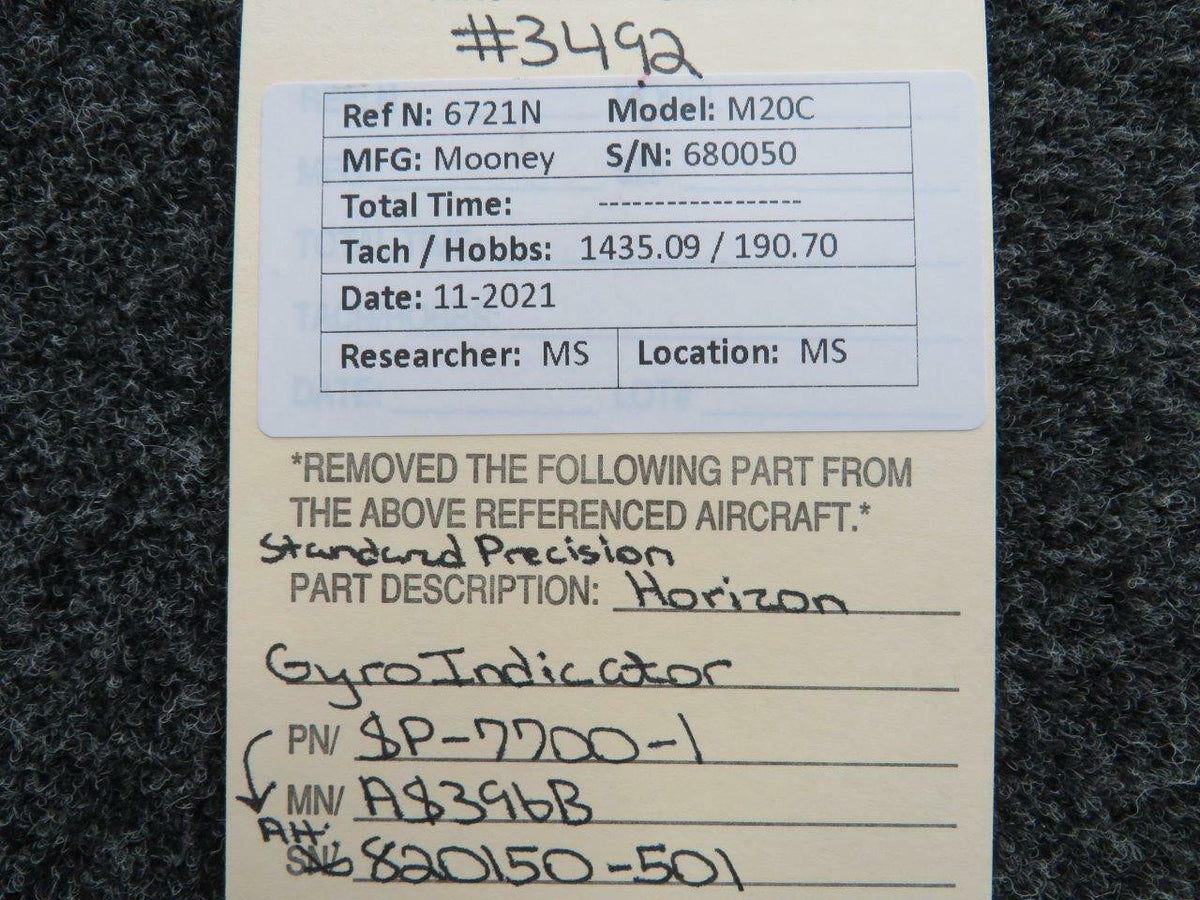 #3492
Ref N: 6721N Model: M20C
MFG: Mooney S/N: 680050
Total Time: -----------------
Tach / Hobbs: 1435.09 / 190.70
Date: 11-2021
Researcher: MS Location: MS
DATE: LOT#
*REMOVED THE FOLLOWING PART FROM
THE ABOVE REFERENCED AIRCRAFT.*
Standard Precision
PART DESCRIPTION: Horizon
Gyro Indicator
PN/ SP-7700-1
MN/ AS396B
Alt.
SN/ 820150-501